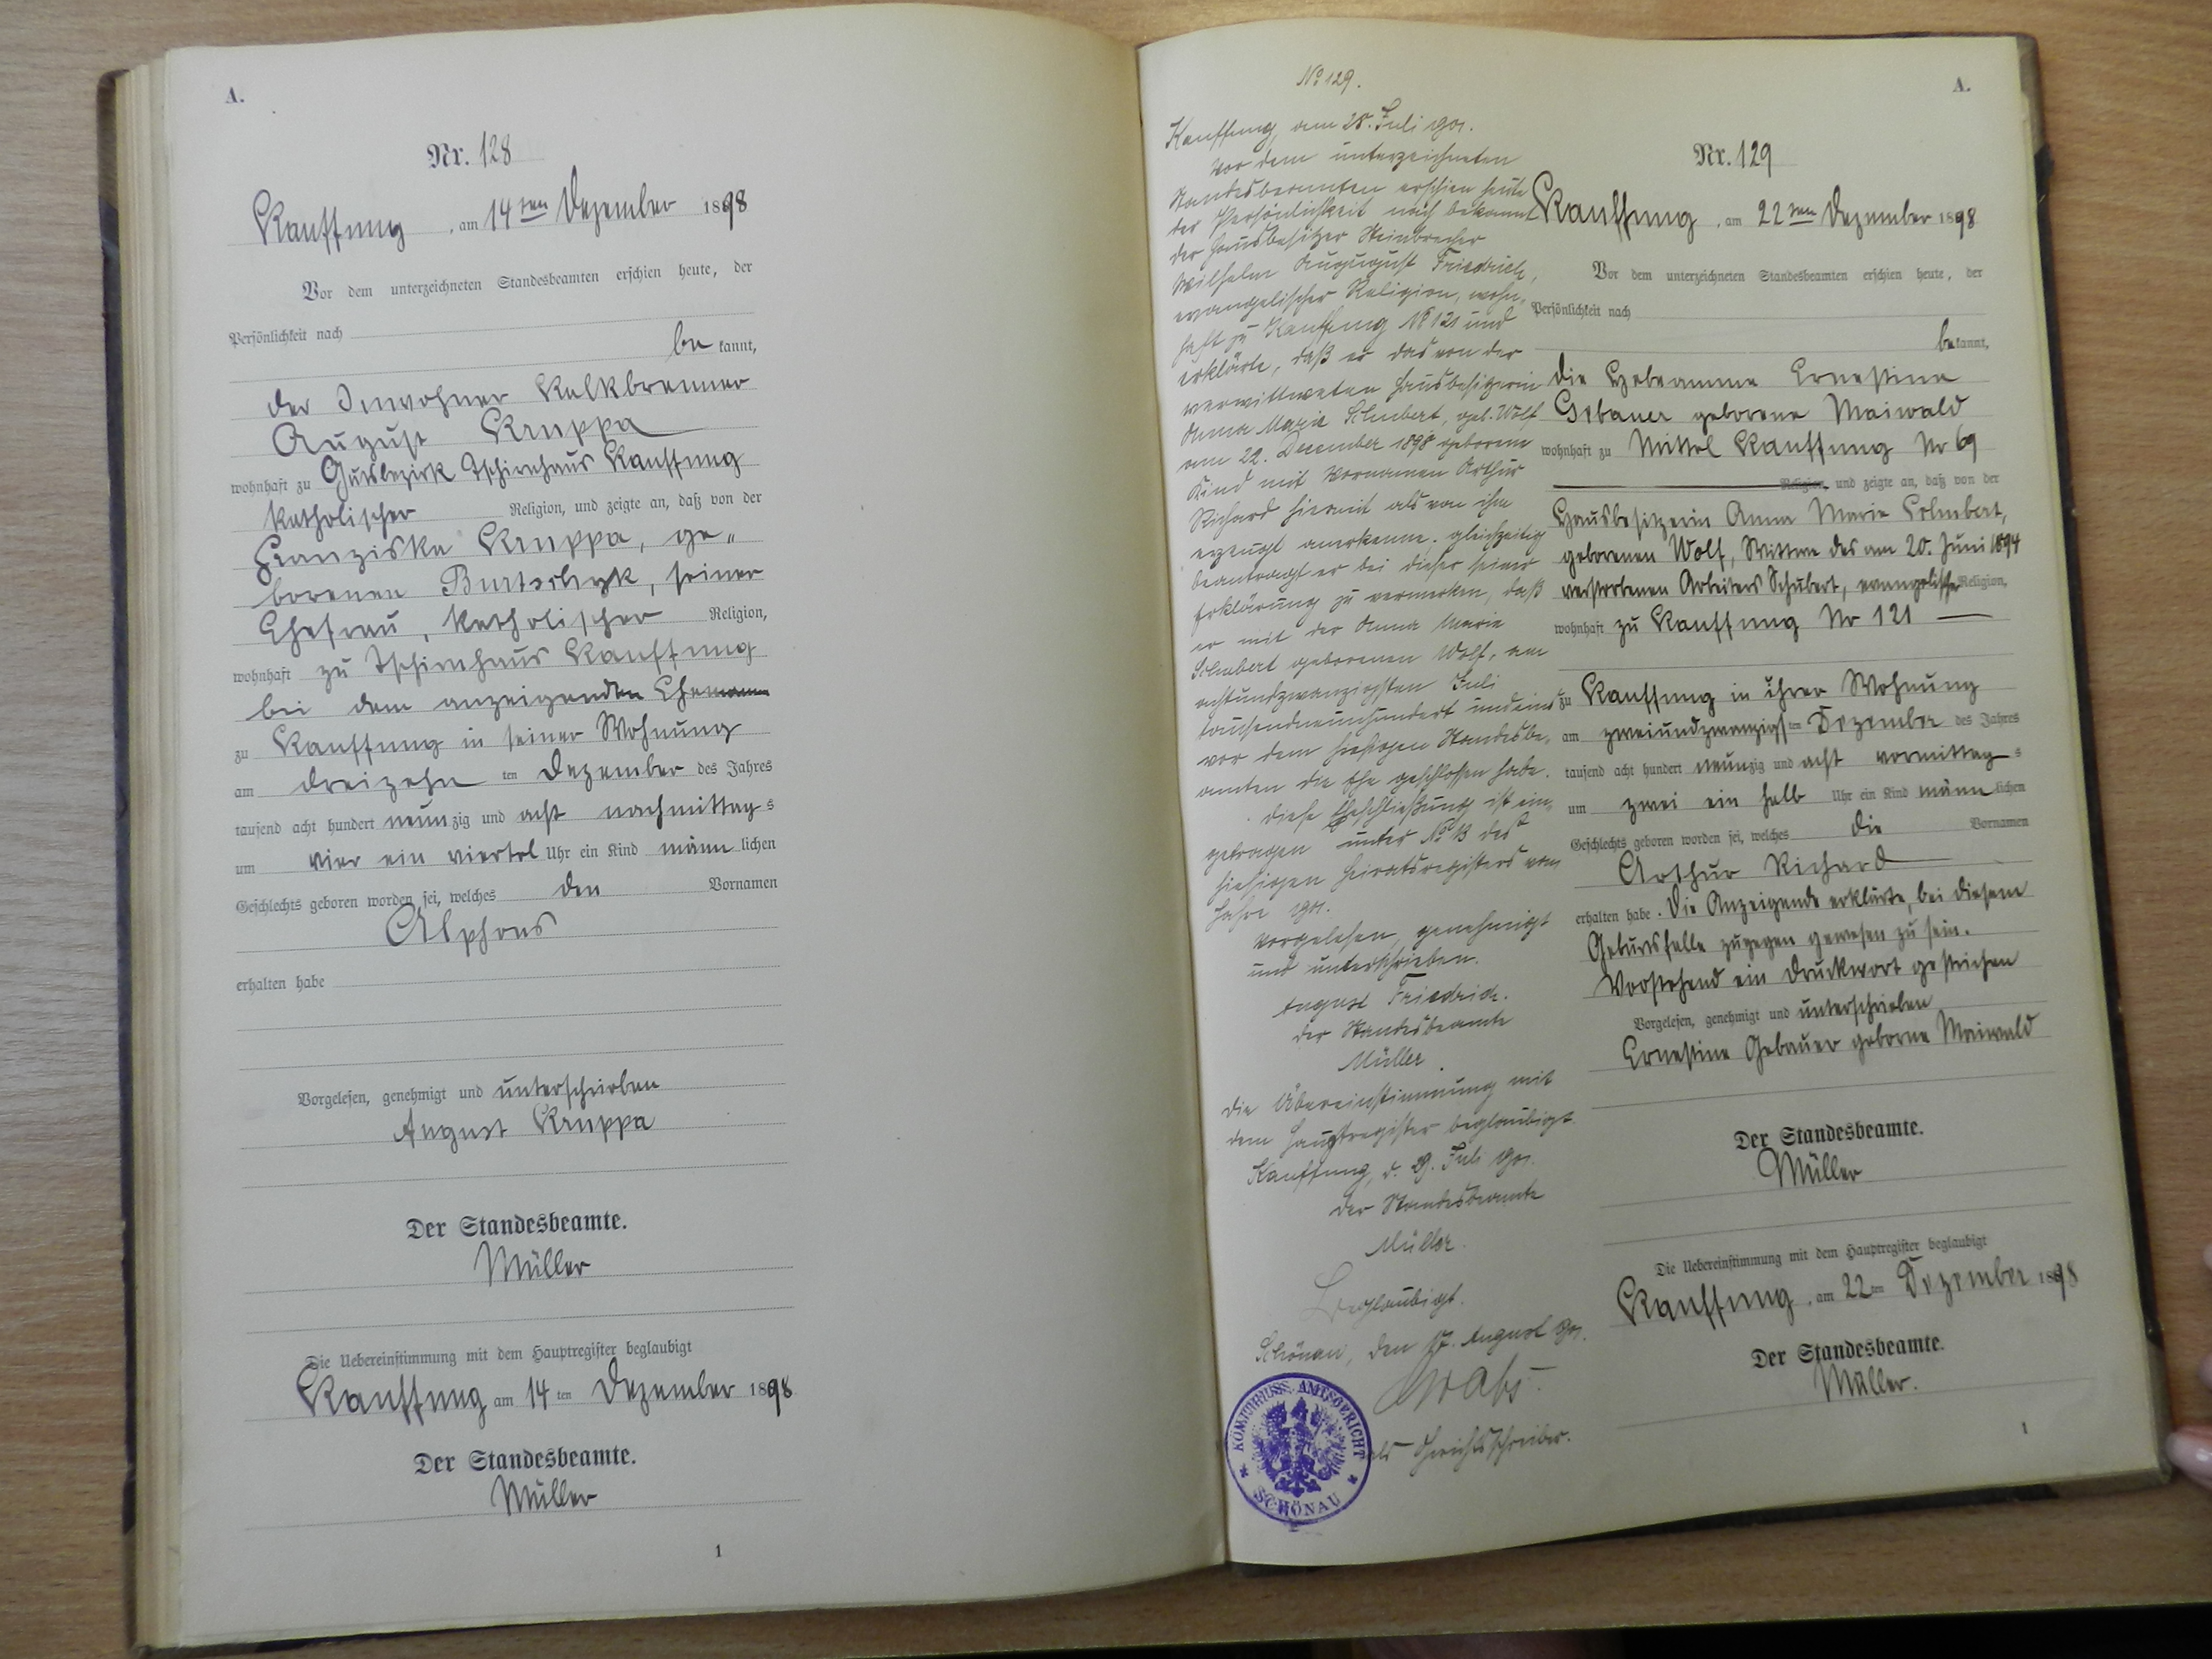 A.
Nr. 128
Kauffung, am 14ten Dezember 1898
Vor dem unterzeichneten Standesbeamten erschien heute, der
Persönlichkeit nach
be kannt,
der Inwohner Kalkbrenner
August Kruppa
wohnhaft zu Gutsbezirk Tschirnhaus Kauffung
katholischer Religion, und zeigte an, daß von der
Franziska Kruppa, ge„
borenen Burtschyk, seiner
Ehefrau, katholischer Religion,
wohnhaft zu Tschirnhaus Kauffung
bei dem anzeigenden Ehemann
zu Kauffung in seiner Wohnung
am dreizehn ten Dezember des Jahres
tausend acht hundert neun zig und acht nachmittag s
um vier ein viertel Uhr ein Kind männ lichen
Geschlechts geboren worden sei, welches den Vornamen
Alphons
erhalten habe
Vorgelesen, genehmigt und unterschrieben
August Kruppa
Der Standesbeamte.
Müller
Die Uebereinstimmung mit dem Hauptregister beglaubigt
Kauffung am 14 ten Dezember 1898
Der Standesbeamte.
Müller
1
No 129.
Kauffung, am 28. Juli 1901.
Vor dem unterzeichneten
Standesbeamten erschien heute
der Persönlichkeit nach bekannt
der Hausbesitzer Steinbrecher
Wilhelm Augugust Friedrich,
evangelischer Religion, wohn„
haft zu Kauffung No 121 und
erklärte, daß er das von der
verwittweten Hausbesitzerin
Anna Marie Schubert, geb. Wolf
am 22. December 1898 geborene
Kind mit Vornamen Arthur
Richard hiermit als von ihm
erzeugt anerkenne. gleichzeitig
beantragt er bei dieser seiner
Erklärung zu vermerken, daß
er mit der Anna Marie
Schubert geborenen Wolf, am
achtundzwanzigsten Juli
tausendneunhundert undeins
vor dem hiesigen Standesbe„
amten die Ehe geschlossen habe.
Diese Eheschließung ist ein„
getragen unter No 13 des
hiesigen Heiratsregisters vom
Jahre 1901.
Vorgelesen, genehmigt
und unterschrieben.
August Friedrich.
der Standesbeamte
Müller.
Die Übereinstimmung mit
dem Hauptregister beglaubigt.
Kauffung, d. 29. Juli 1901.
Der Standesbeamte
Müller.
Beglaubigt.
Schönau, den 17. August 1901.
als Gerichtsschreiber.
KÖNIGL. PREUSS. AMTSGERICHT
* SCHÖNAU *
A.
Nr. 129
Kauffung, am 22ten Dezember 1898
Vor dem unterzeichneten Standesbeamten erschien heute, der
Persönlichkeit nach
be kannt,
die Hebeamme Ernestine
Gebauer geborene Maiwald
wohnhaft zu Mittel Kauffung Nr 69
Religion, und zeigte an, daß von der
Hausbesitzerin Anna Marie Schubert,
geborenen Wolf, Wittwe des am 20. Juni 1894
verstorbenen Arbeiters Schubert, evangelischer Religion,
wohnhaft zu Kauffung Nr 121
zu Kauffung in ihrer Wohnung
am zweiundzwanzigs ten Dezember des Jahres
tausend acht hundert neunzig und acht vormittag s
um zwei ein halb Uhr ein Kind männ lichen
Geschlechts geboren worden sei, welches die Vornamen
Arthur Richard
erhalten habe. Die Anzeigende erklärte, bei diesem
Geburtsfalle zugegen gewesen zu sein.
Vorstehend ein Druckwort gestrichen
Vorgelesen, genehmigt und unterschrieben
Ernestine Gebauer geborne Maiwald
Der Standesbeamte.
Müller
Die Uebereinstimmung mit dem Hauptregister beglaubigt
Kauffung, am 22 ten Dezember 1898
Der Standesbeamte.
Müller.
1